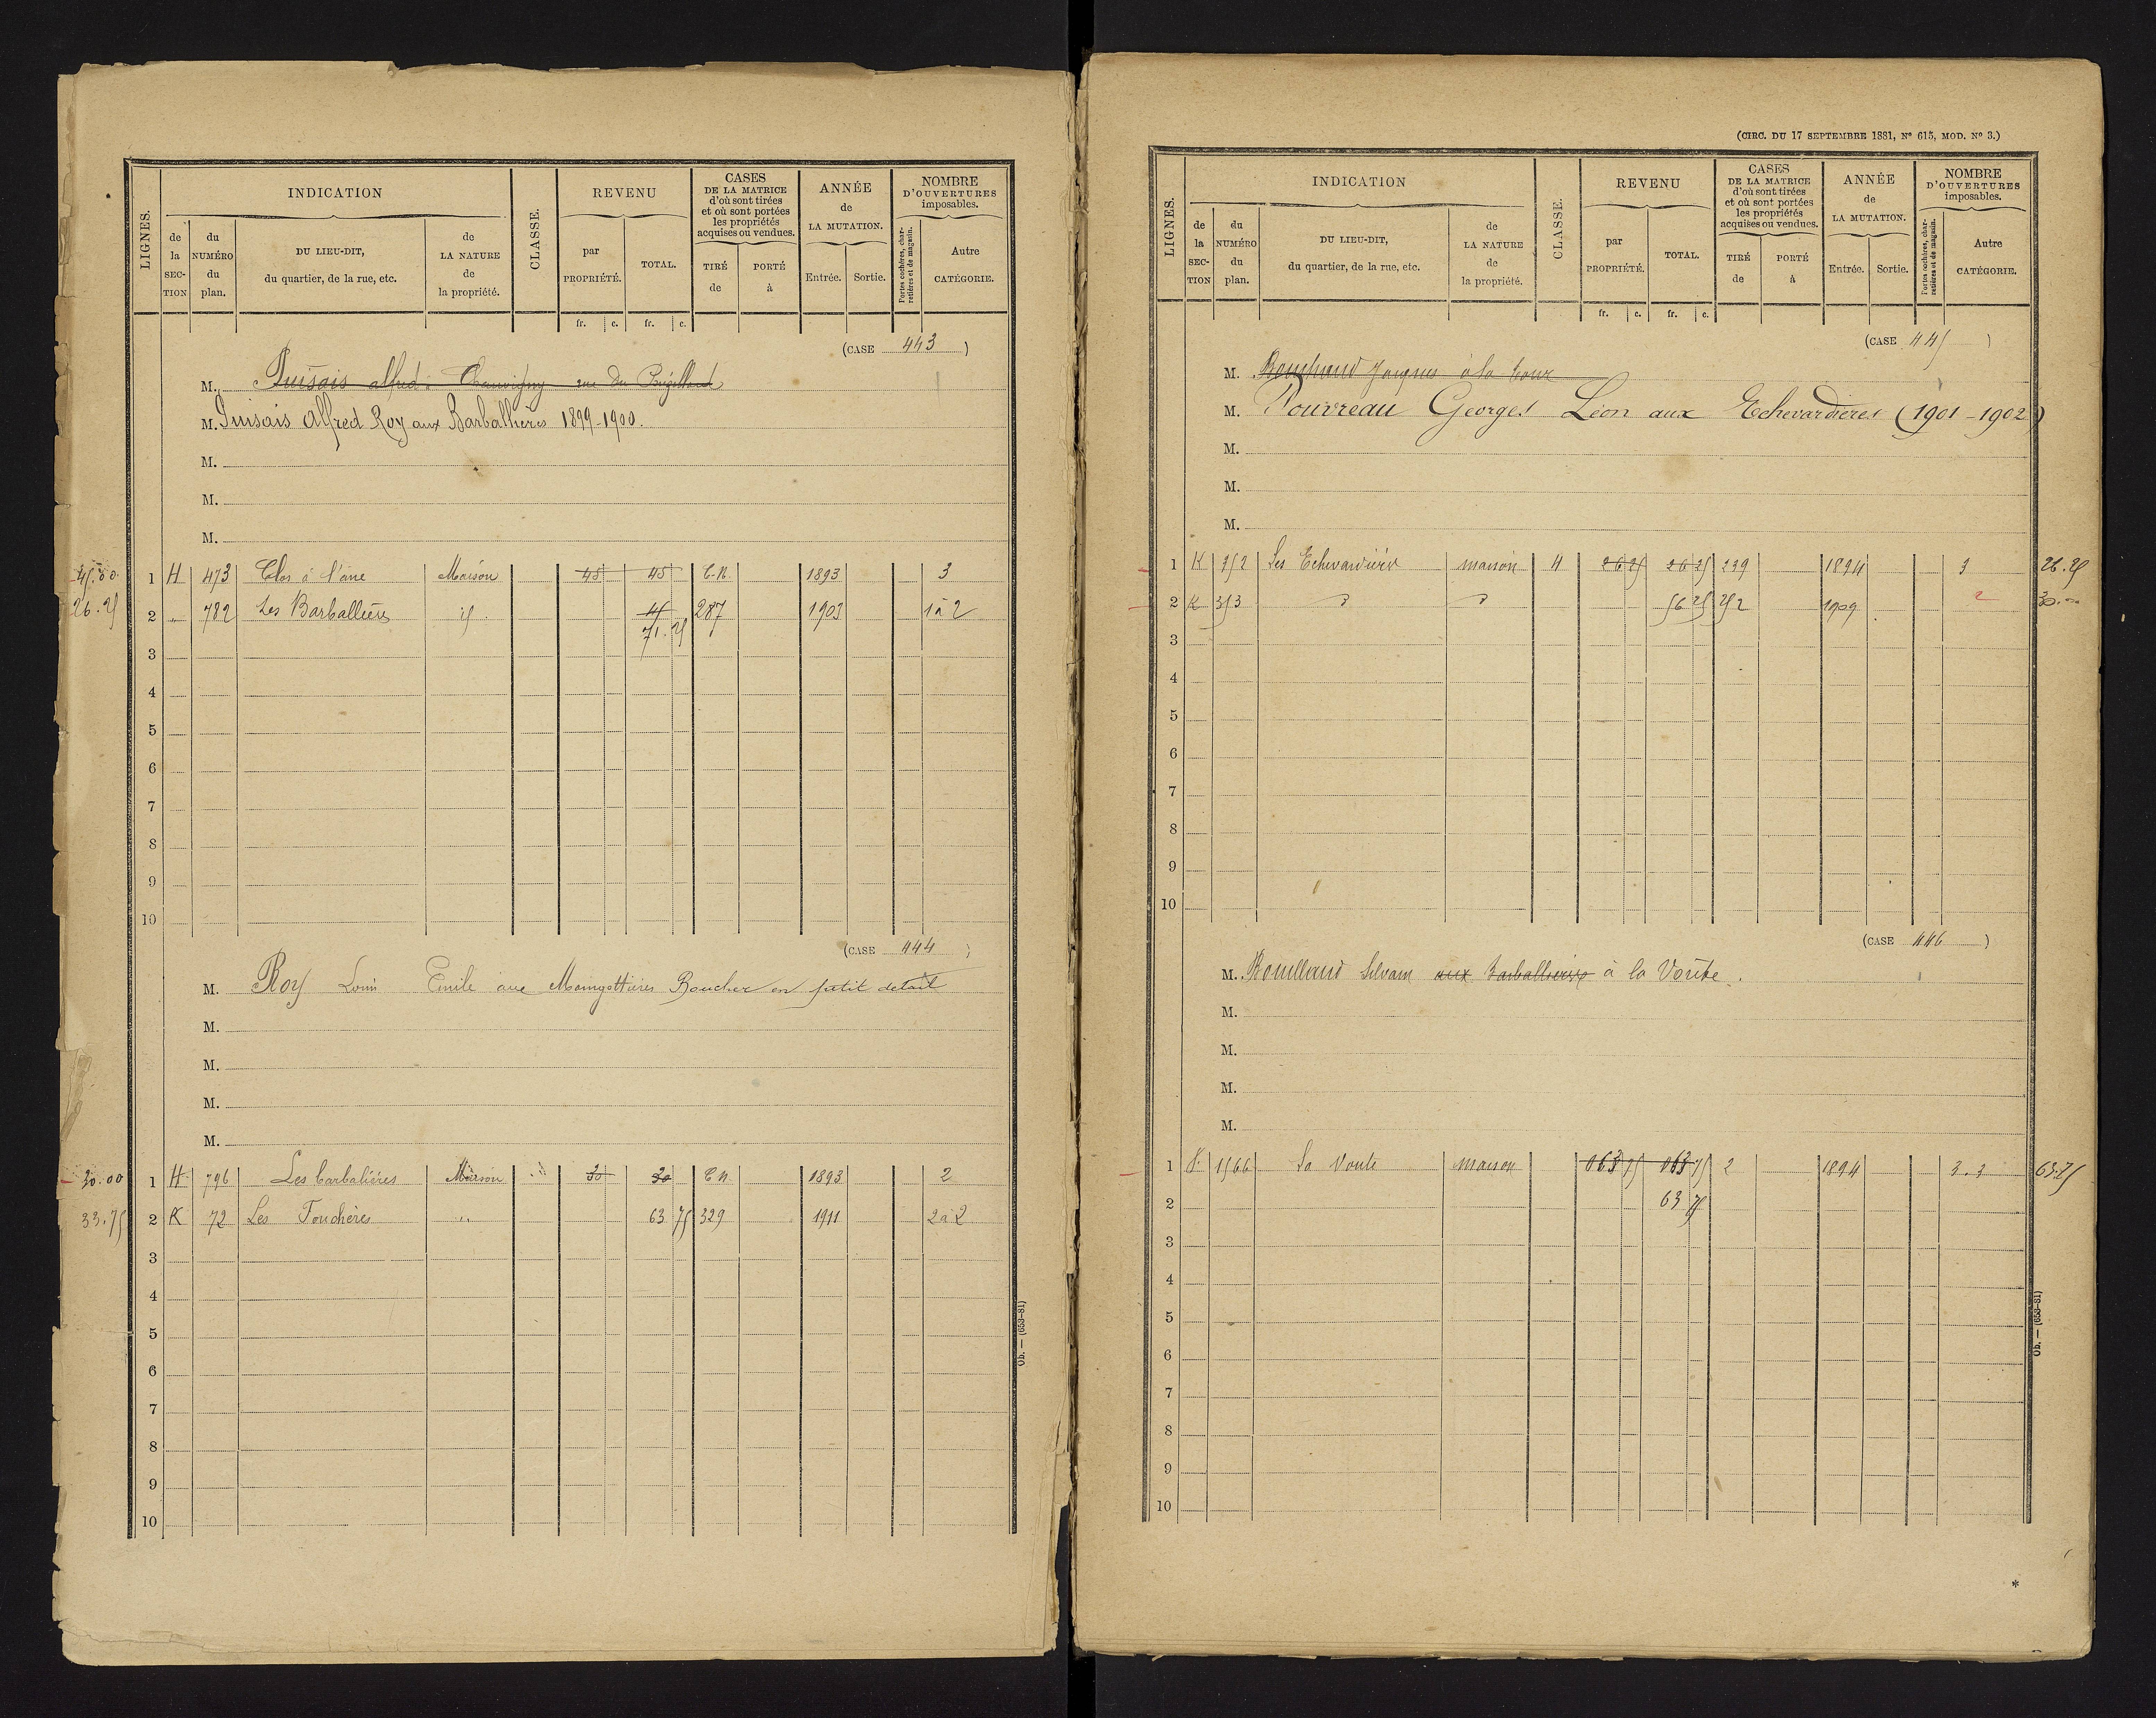 LIGNES.
INDICATION
CLASSE.
REVENU
CASES
DE LA MATRICE
d'où sont tirées
et où sont portées
les propriétés
acquises ou vendues.
ANNÉE
de
LA MUTATION.
NOMBRE
D'OUVERTURES
imposables.
de la SECTION
du NUMÉRO du plan.
DU LIEU-DIT,
du quartier, de la rue, etc.
de LA NATURE de la propriété.
par PROPRIÉTÉ.
TOTAL.
TIRÉ de
PORTÉ à
Entrée.
Sortie.
Portes cochères, charretières et de magasin.
Autre CATÉGORIE.
fr. c. fr. c.
(CASE 443)
M. Puisais alfred à Chauvigny rue du
M. Puisais Alfred Roy aux Barballières 1899-1900.
M.
M.
M.
45.00 1 H 473 Clos à l'âne Maison 45 45 C.N. 1893 3
26.25 2 " 782 Les Barballières id. 45 287 1903 1 à 2
71.25
3
4
5
6
7
8
9
10
(CASE 444)
M. Roy Louis Emile aux Boucher en petit detail
M.
M.
M.
M.
30.00 1 H 796 Les barbalières Maison 30 30 C.N. 1893 2
33.75 2 K 72 Les Fouchères " 63 75 329 1911 2 à 2
3
4
5
6
7
8
9
10
Ob. — (653-81)
(CIRC. DU 17 SEPTEMBRE 1881, Nº 615, MOD. Nº 3.)
LIGNES.
INDICATION
CLASSE.
REVENU
CASES
DE LA MATRICE
d'où sont tirées
et où sont portées
les propriétés
acquises ou vendues.
ANNÉE
de
LA MUTATION.
NOMBRE
D'OUVERTURES
imposables.
de la SECTION
du NUMÉRO du plan.
DU LIEU-DIT,
du quartier, de la rue, etc.
de LA NATURE de la propriété.
par PROPRIÉTÉ.
TOTAL.
TIRÉ de
PORTÉ à
Entrée.
Sortie.
Portes cochères, charretières et de magasin.
Autre CATÉGORIE.
fr. c. fr. c.
(CASE 445)
M. Jacques à la
M. Pouvreau Georges Léon aux Echevardières (1901-1902)
M.
M.
M.
1 K 352 Les Echevardières maison 4 26 25 26 25 239 1894 3 26.25
2 K 353 56 25 252 1909 2 30.00
3
4
5
6
7
8
9
10
(CASE 446)
M. Rouilland Silvain aux Barballières à la Voûte.
M.
M.
M.
M.
1 1566 La Voute maison 063 75 063 75 2 1894 3.3 63.75
2 63 75
3
4
5
6
7
8
9
10
Ob. — (653-81)
*